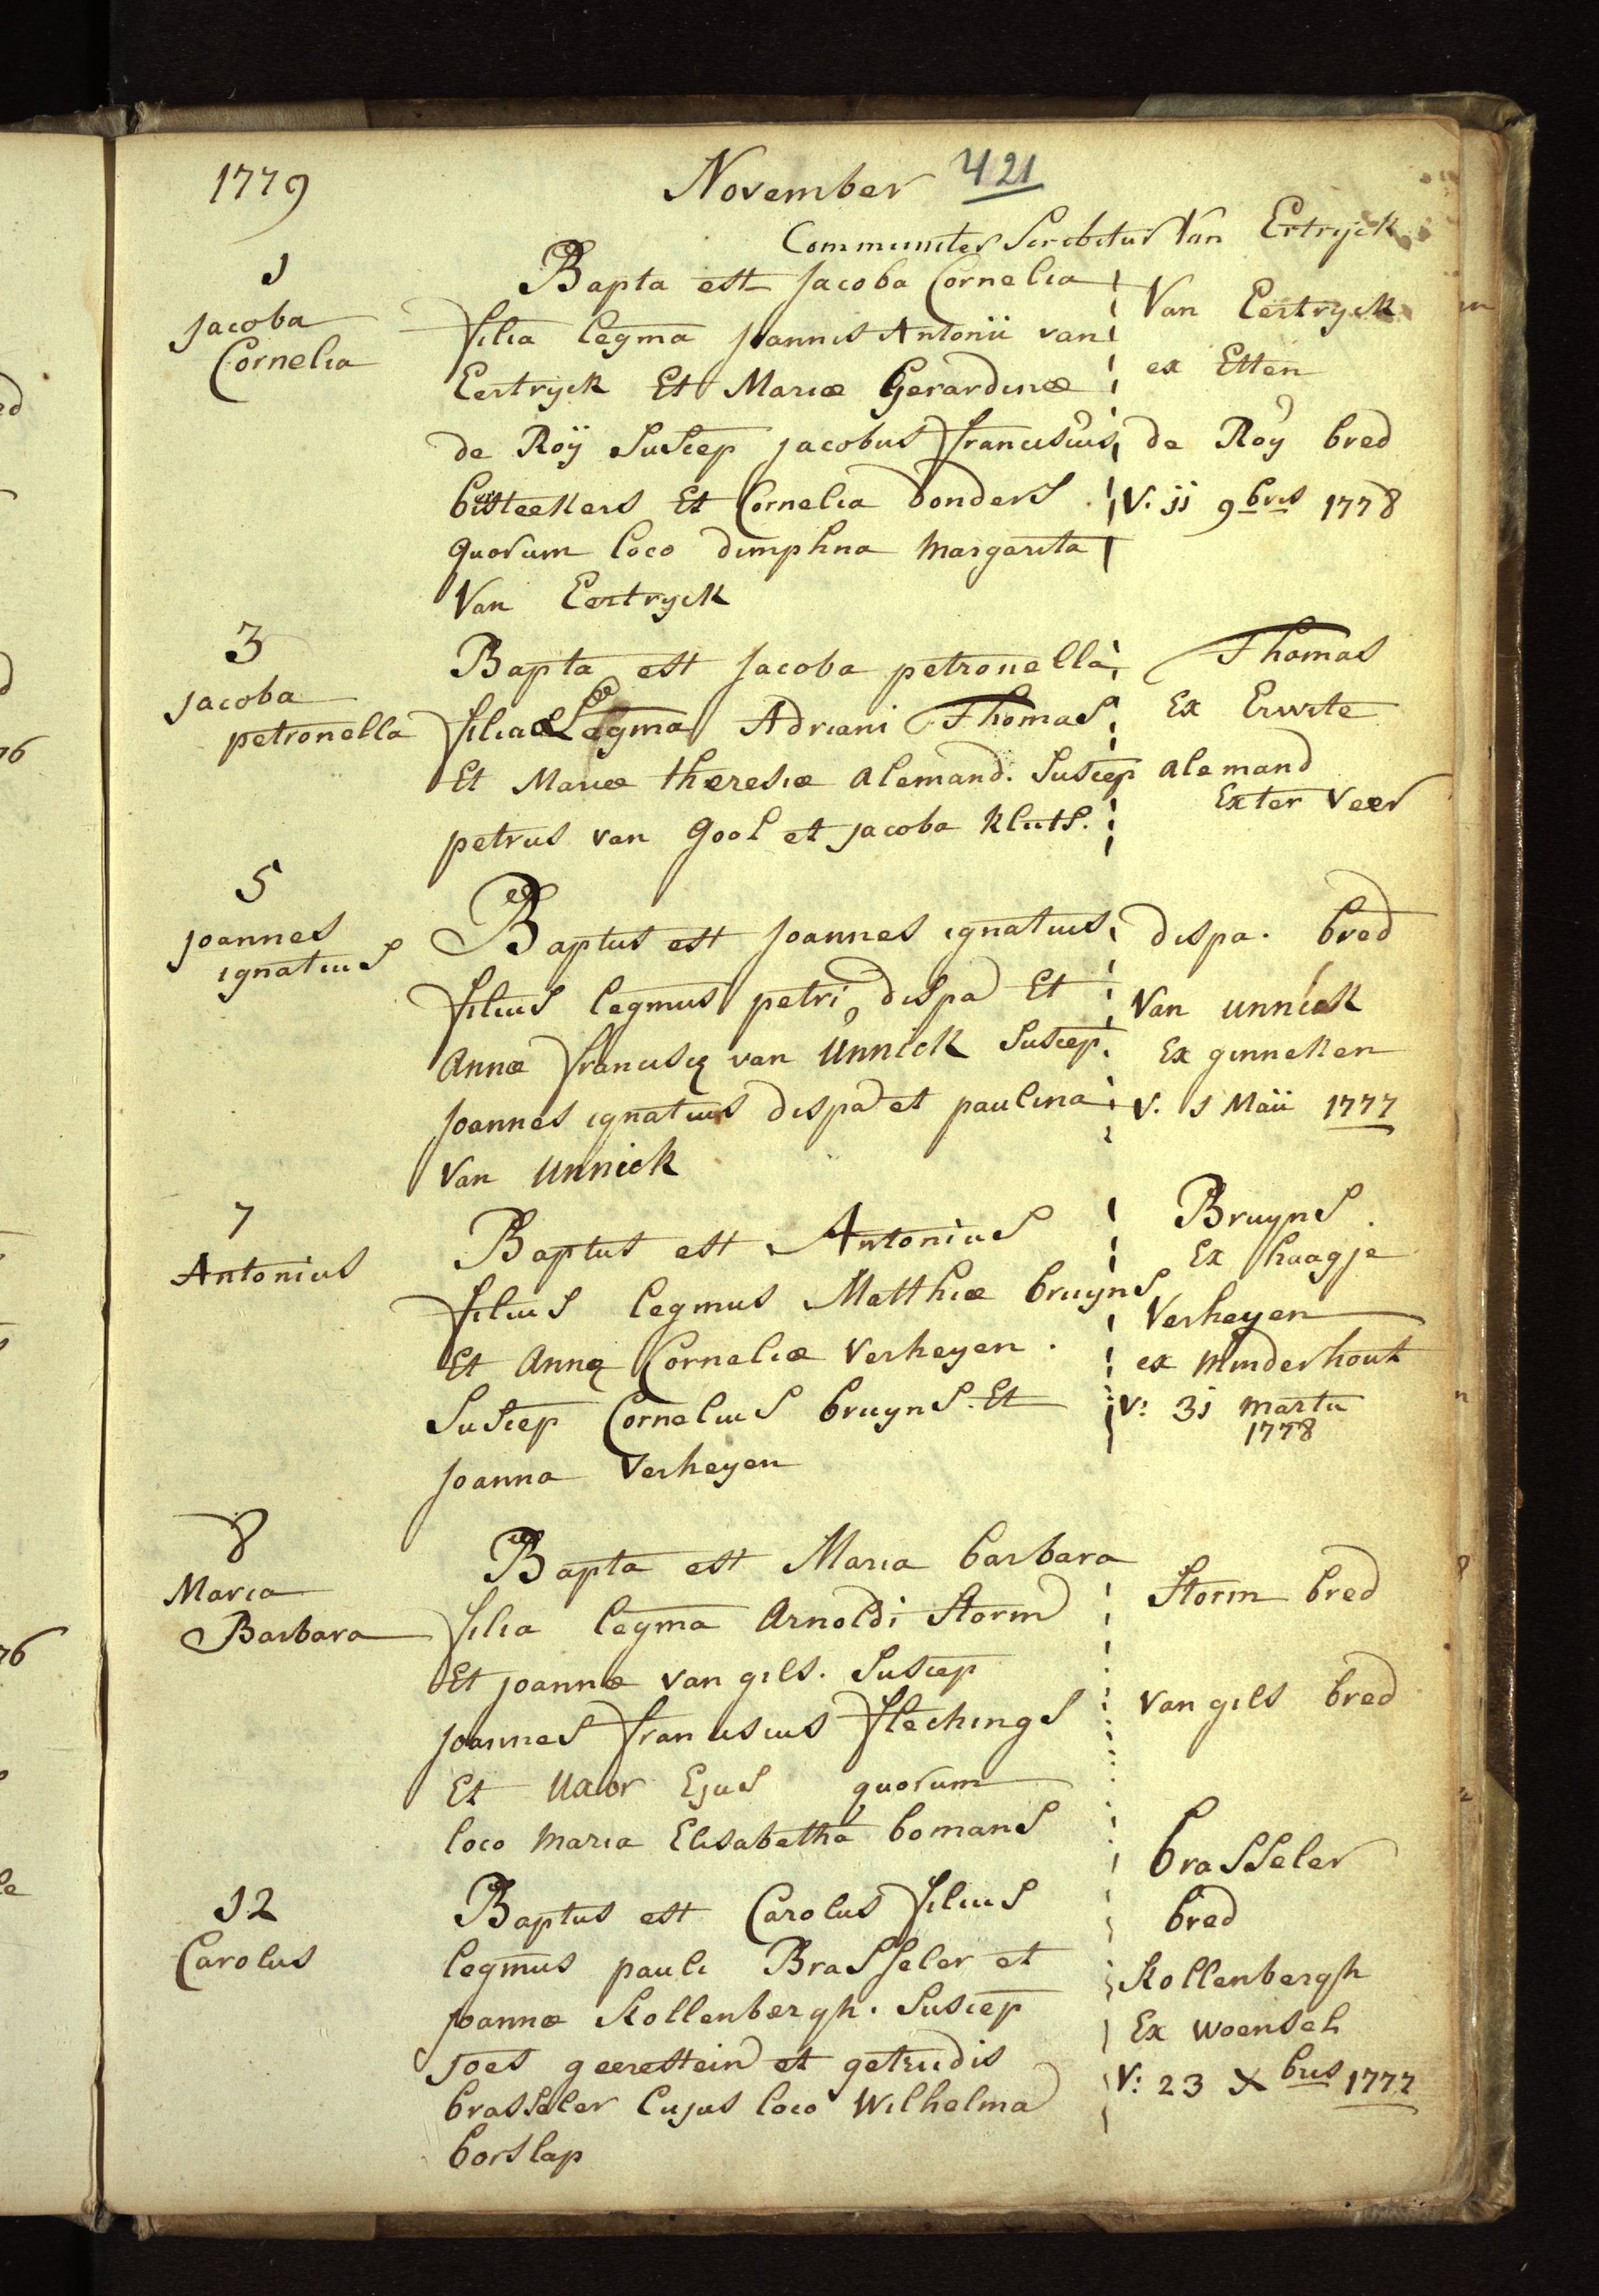 1779
November 421
Communiter Scribitur Van Ertryck
1
Jacoba
Cornelia
Bapta est Jacoba Cornelia
filia legma Joannis Antonii van
Eertryck Et Mariæ Gerardinæ
de Roÿ Suscep jacobus franciscus
Et Cornelia donders
quorum loco dimphna Margarita
Van Eertryck
Van Eertryck
ex Etten
de Roÿ bred
V. 11 9bris 1778
3
Jacoba
petronella
Bapta est Jacoba petronella
filia Legma Adriani Thomas
Et Mariæ theresiæ alemand. Suscep
petrus van Gool et jacoba Kluts.
Thomas
Ex Erwite
alemand
Ex ter Veer
5
Joannes
ignatius
Baptus est Joannes ignatius
filius legmus petri dispa Et
Annæ franciscæ van Unnick Suscep
Joannes ignatius dispa et paulina
Van Unnick
dispa. bred
Van unnick
Ex ginneken
V. 1 Maii 1777
7
Antonius
Baptus est Antonius
filius legmus Matthiæ bruyns
Et Annæ Corneliæ Verheyen.
Suscep Cornelius bruyns. Et
Joanna Verheyen
Bruyns.
Ex haagje
Verheyen
ex Minderhout
V: 31 martii
1778
8
Maria
Barbara
Bapta est Maria barbara
filia legma Arnoldi Storm
Et joannæ van gils. Suscep
joannes franciscus Flechings
Et Uxor Ejus quorum
loco Maria Elisabetha bomans
Storm bred
Van gils bred
12
Carolus
Baptus est Carolus filius
legmus pauli Brasseler et
Joannæ Kollenbergh. Suscep
Joes geerestein et getrudis
brasseler Cujus loco Wilhelma
borslap
brasseler
bred
Kollenbergh
Ex Woensel
V: 23 Xbris 1777